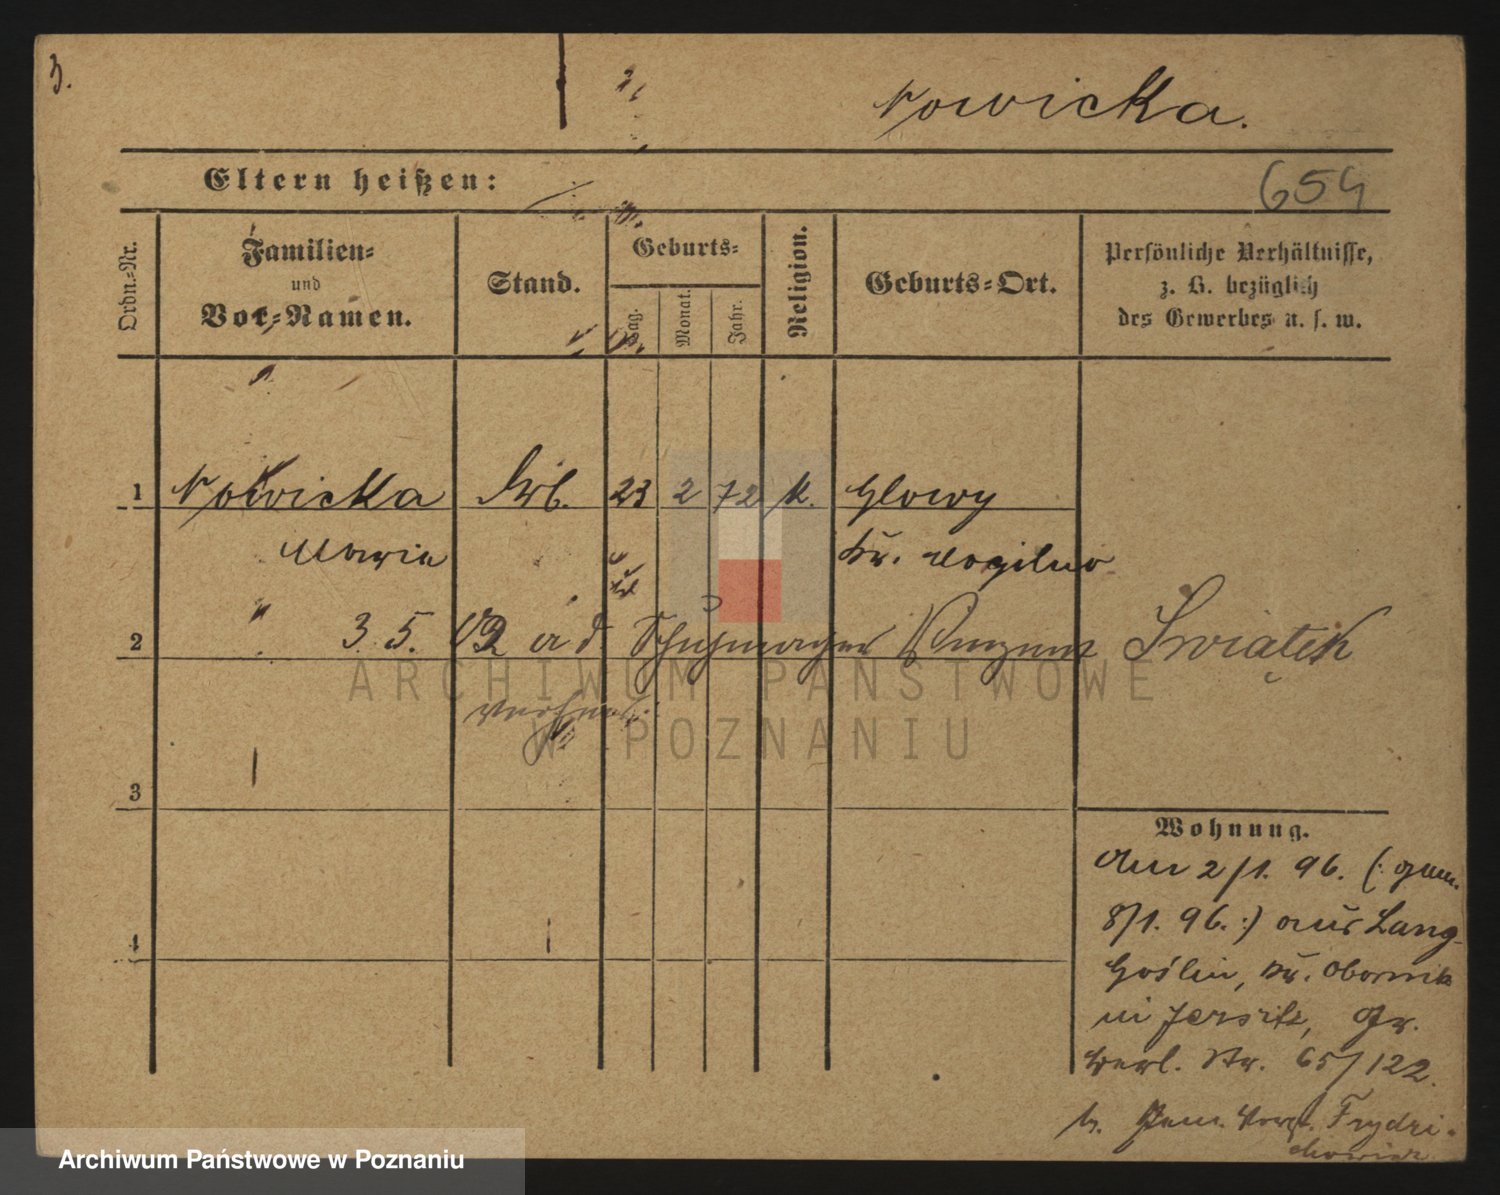 3.
Nowicka.
Eltern heißen:
654
Ordn.-Nr.
Familien-
und
Vor-Namen.
Stand.
Geburts-
Tag.
Monat.
Jahr.
Religion.
Geburts-Ort.
Persönliche Verhältnisse,
z. B. bezüglich
des Gewerbes u. s. w.
1 Nowicka Arb. 23 2 72 k. Glowy
Maria Kr. Mogilno
2 3. 5. 02 a d Schuhmacher Vinzent Świątek
verheir.
3
4
Wohnung.
Am 2/1. 96. (: gem.
8/1. 96. :) aus Lang-
Goślin, Kr. Obornik
in Jersitz, Gr.
Berl. Str. 65/122.
b. Frydri-
chowicz
ARCHIWUM PAŃSTWOWE
W POZNANIU
Archiwum Państwowe w Poznaniu